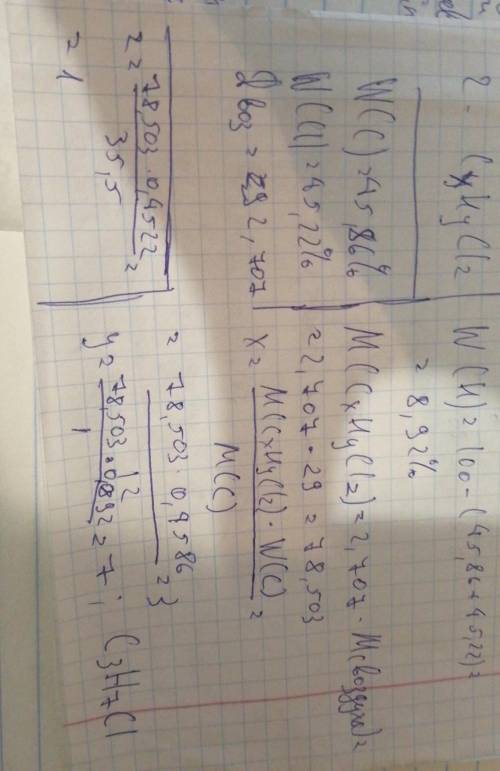 2. CxHyClz
W(C)=45,86%
W(Cl)=45,22%
Dвоз = 2,707
W(H)=100-(45,86+45,22)=
= 8,92%
M(CxHyClz)=2,707·M(воздуха)=
=2,707·29=78,503
x = M(CxHyClz)·W(C) / M(C) =
= 78,503 0,4586 / 12 = 3
y = 78,503·0,892 / 1 = 7; C3H7Cl
z = 78,503·0,4522 / 35,5 =
= 1